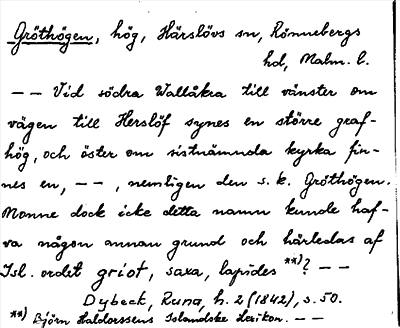 Gröthögen, hög, Härslövs sn, Rönnebergs
hd, Malm. l.
– – Vid södra Wallåkra till vänster om
vägen till Herslöf synes en större graf-
hög, och öster om sistnämnda kyrka fin-
nes en, – – , nemligen den s. k. Gröthögen.
Monne dock icke detta namn kunde haf-
va någon annan grund och härledas af
Isl. ordet griot, saxa, lapides **)? – –
Dybeck, Runa, h. 2 (1842), s. 50.
**) Björn Haldorssens Islandske Lexikon. – –